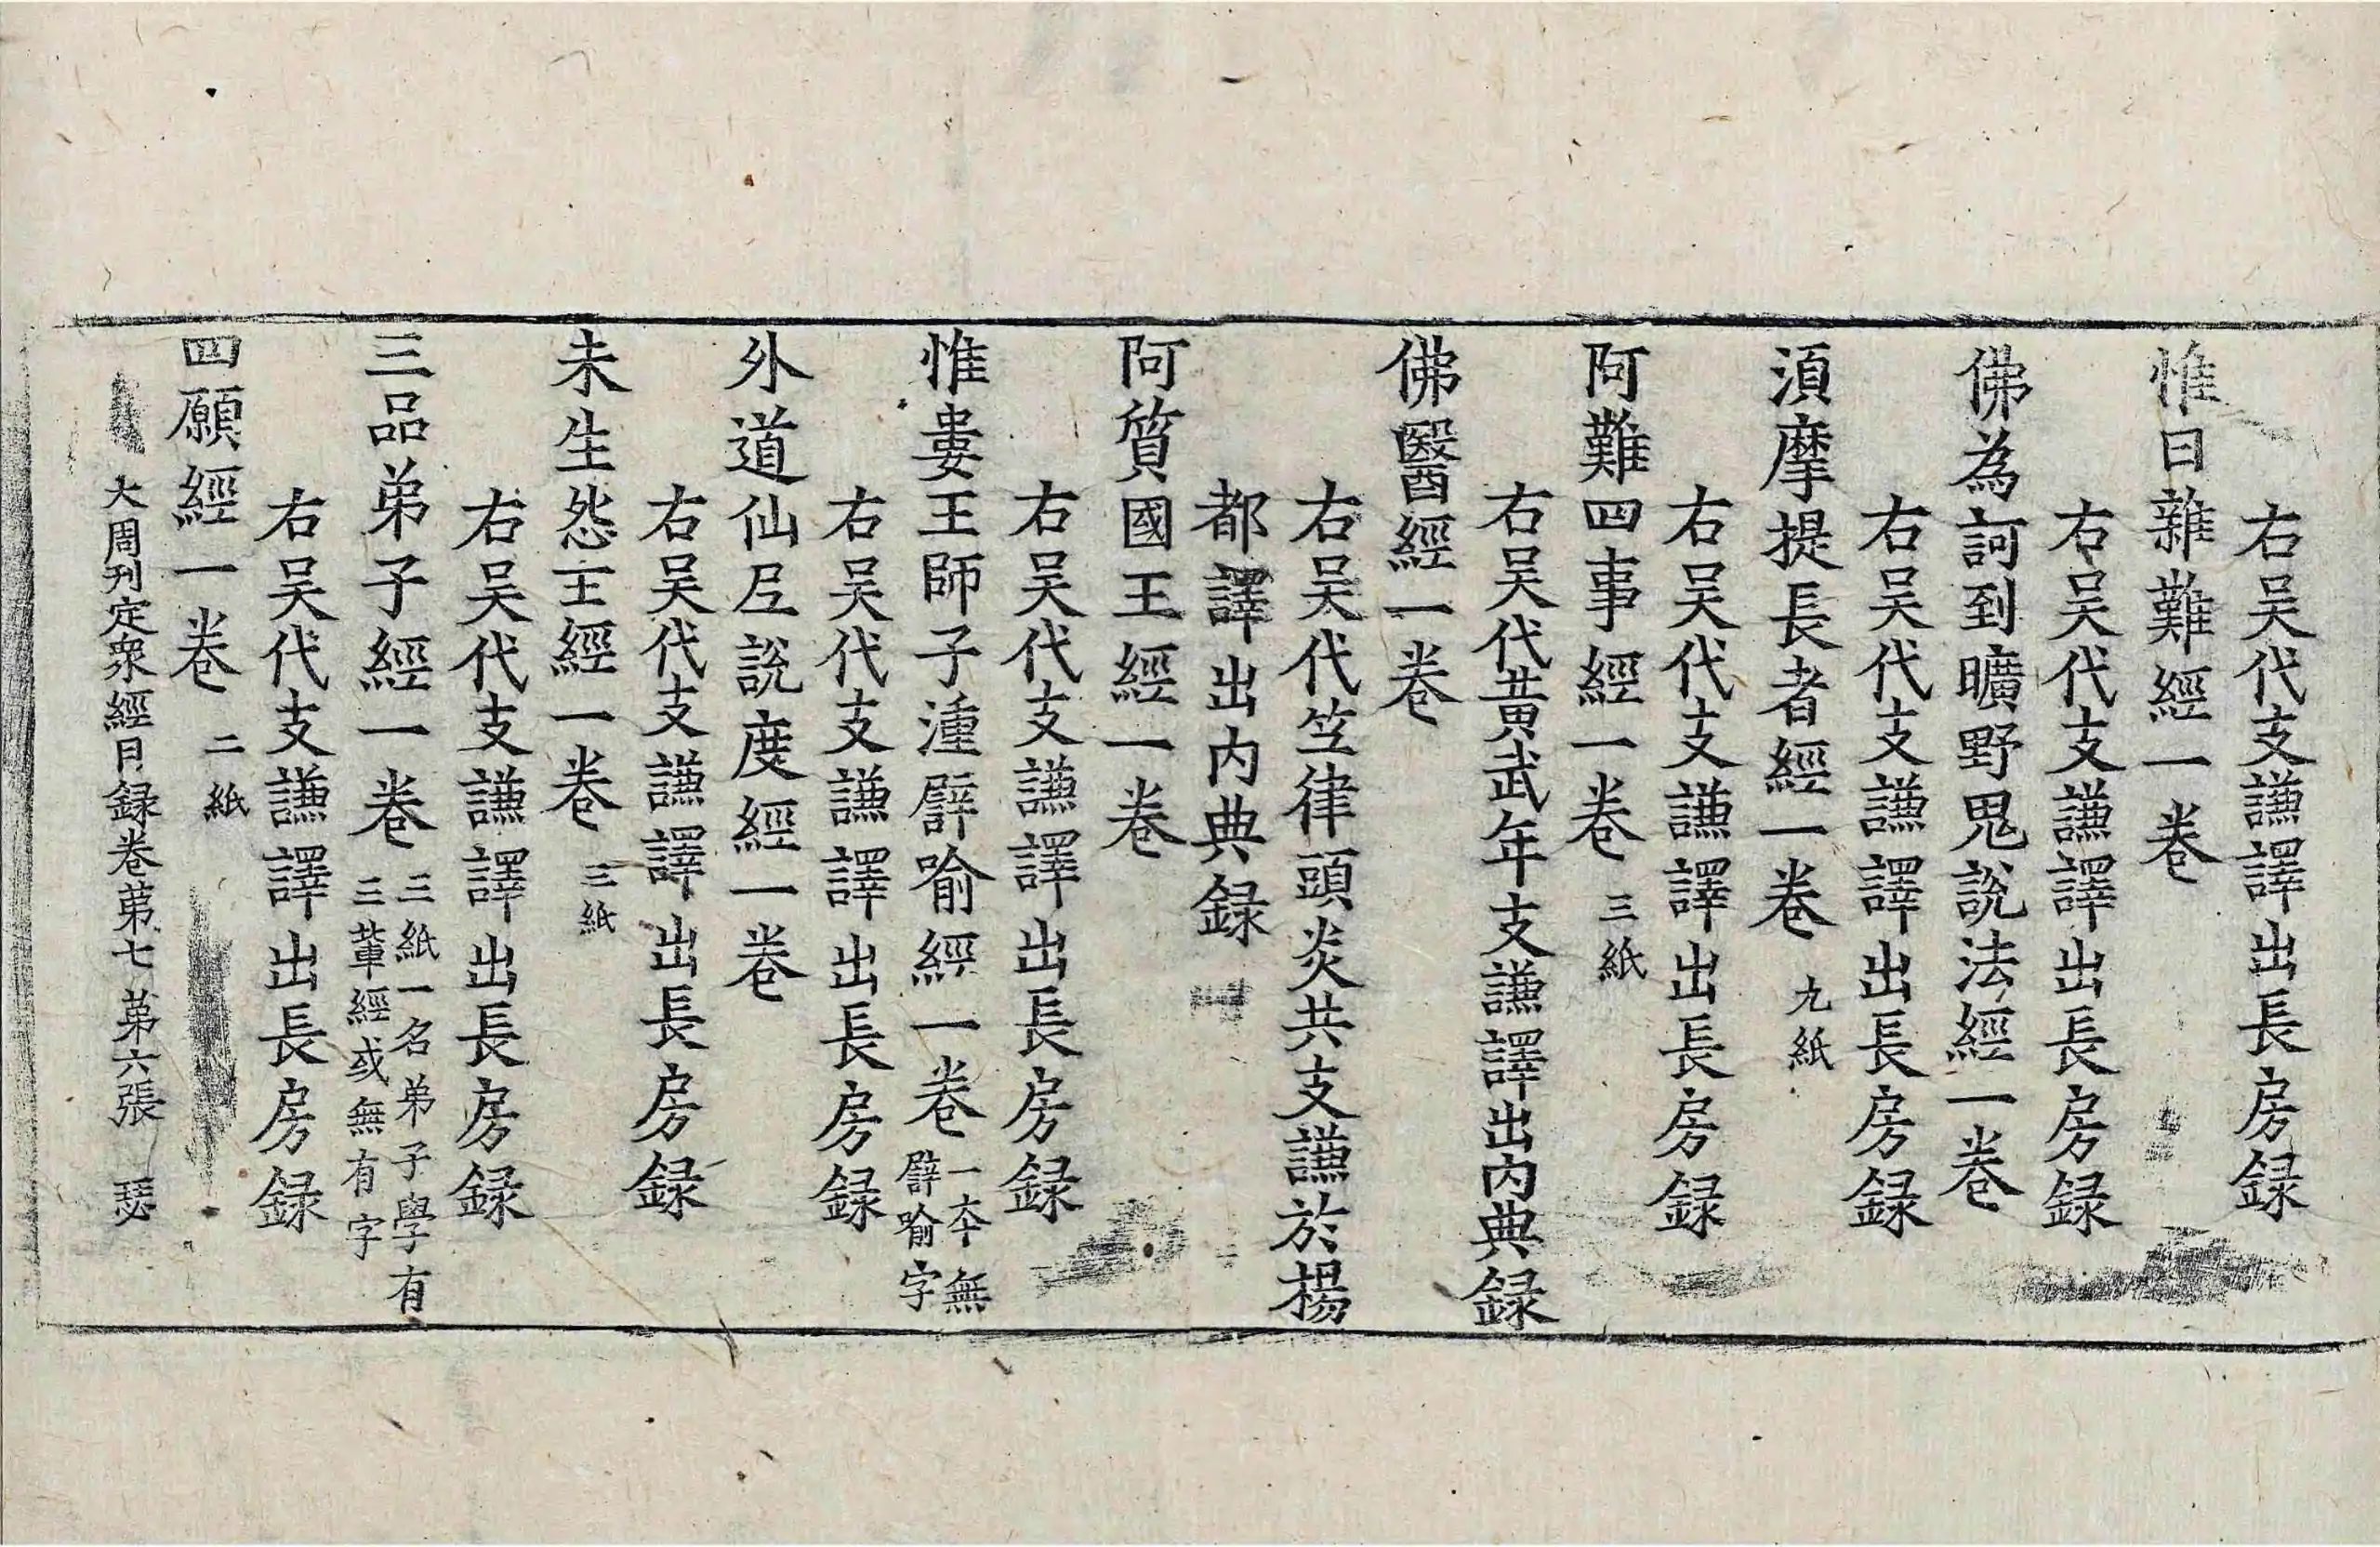 右吴代支謙譯出長房録
惟曰雜難經一卷
右吴代支謙譯出長房録
佛為訶到曠野鬼說法經一卷
右吴代支謙譯出長房録
湏摩提長者經一卷 九紙
右吴代支謙譯出長房録
阿難四事經一卷 三紙
右吴代黄武年支謙譯出内典録
佛醫經一卷
右吴代竺律頭炎共支謙於楊
都譯出内典録
阿質國王經一卷
右吴代支謙譯出長房録
惟婁王師子湩譬喻經一卷 一夲無
譬喻字
右吴代支謙譯出長房録
外道仙尼說度經一卷
右吴代支謙譯出長房録
未生怨王經一卷 三紙
右吴代支謙譯出長房録
三品弟子經一卷 三紙一名弟子學有
三輩經或無有字
右吴代支謙譯出長房録
四願經一卷 二紙
大周刋定衆經目録卷苐七 苐六張 瑟